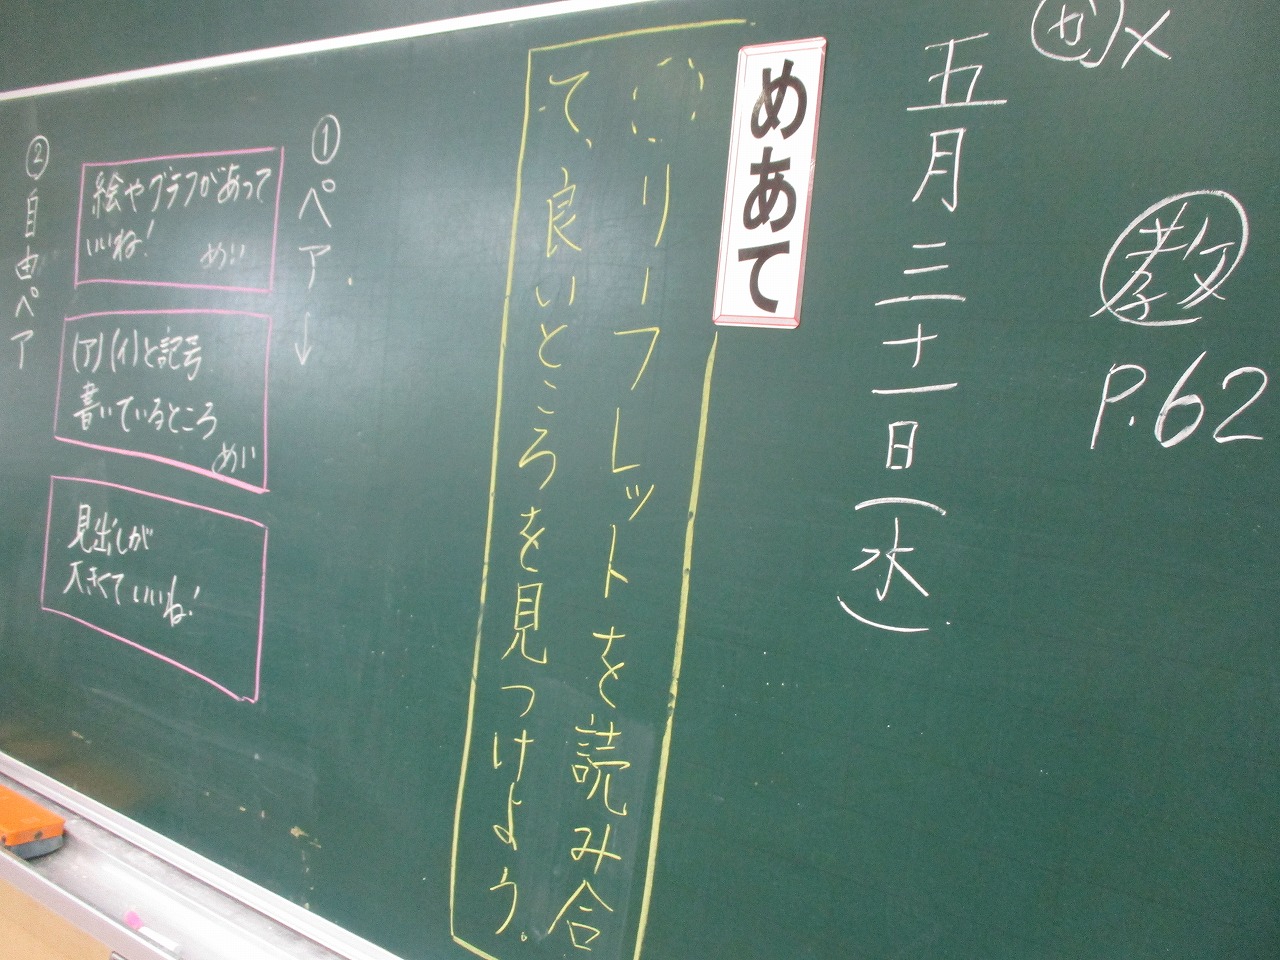 か×
教 P.62
五月三十一日（水）
めあて
リーフレットを読み合
て、良いところを見つけよう。
①ペア→
絵やグラフがあって
いいね！
めい
(ア)(イ)と記号
書いているところ
めい
見出しが
大きくていいね！
②自由ペア